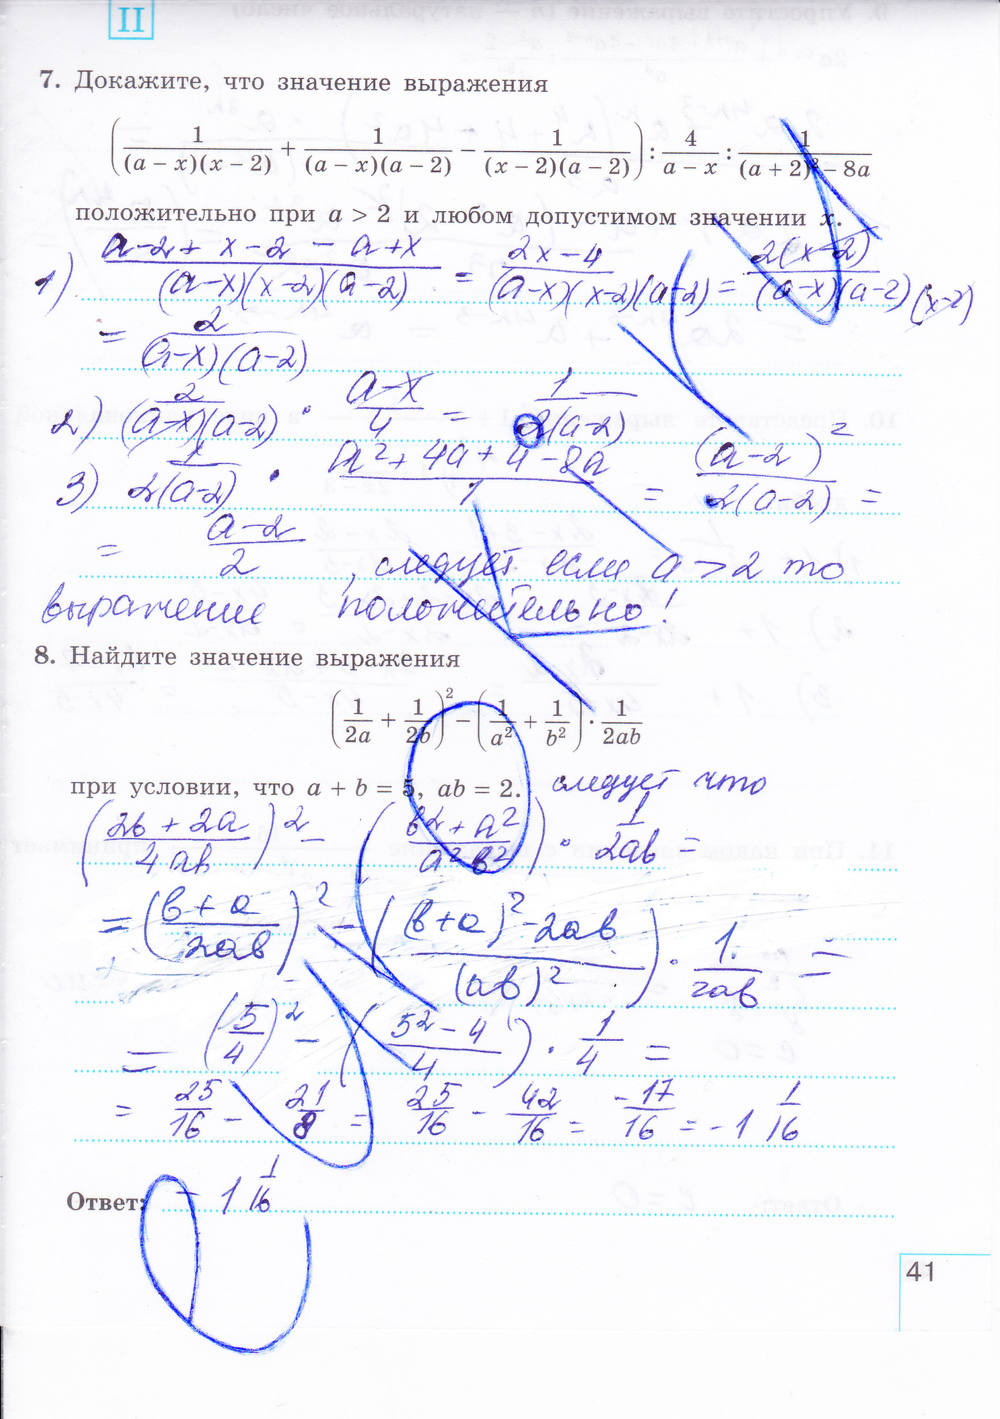 II
7. Докажите, что значение выражения
(1/((a − x)(x − 2)) + 1/((a − x)(a − 2)) − 1/((x − 2)(a − 2))) : 4/(a − x) : 1/((a + 2)² − 8a)
положительно при a > 2 и любом допустимом значении x.
1) (a−2 + x−2 − a+x)/((a−x)(x−2)(a−2)) = (2x−4)/((a−x)(x−2)(a−2)) = 2(x−2)/((a−x)(a−2)(x−2))
= 2/((a−x)(a−2))
2) 2/((a−x)(a−2)) · (a−x)/4 = 1/(2(a−2))
3) 1/(2(a−2)) · (a²+4a+4−8a)/1 = (a−2)²/(2(a−2)) =
= (a−2)/2 , следует если a > 2 то
выражение положительно!
8. Найдите значение выражения
(1/2a + 1/2b)² − (1/a² + 1/b²) · 1/2ab
при условии, что a + b = 5, ab = 2. следует что
((2b + 2a)/4ab)² − ((b² + a²)/a²b²) · 1/2ab =
= ((b + a)/2ab)² − (((b+a)² − 2ab)/(ab)²) · 1/2ab =
= (5/4)² − ((5² − 4)/4) · 1/4 =
= 25/16 − 21/8 = 25/16 − 42/16 = −17/16 = −1 1/16
Ответ: − 1 1/16
41